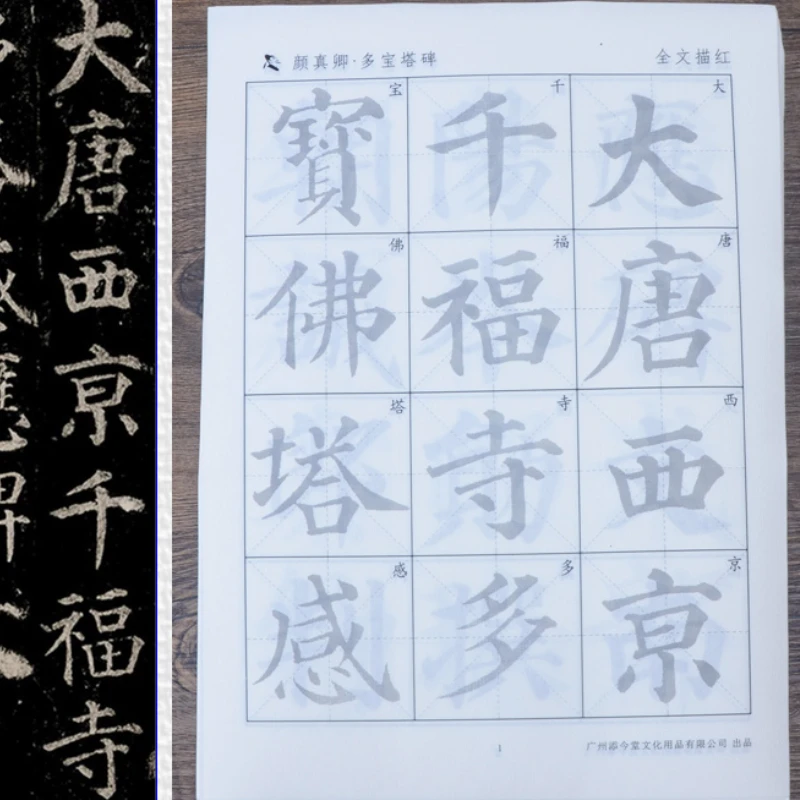 大唐西亰千福寺
颜真卿·多宝塔碑
全文描红
大唐西京
大唐西亰
千福寺多
千福寺多
宝佛塔感
寶佛塔感
1
广州添今堂文化用品有限公司 出品